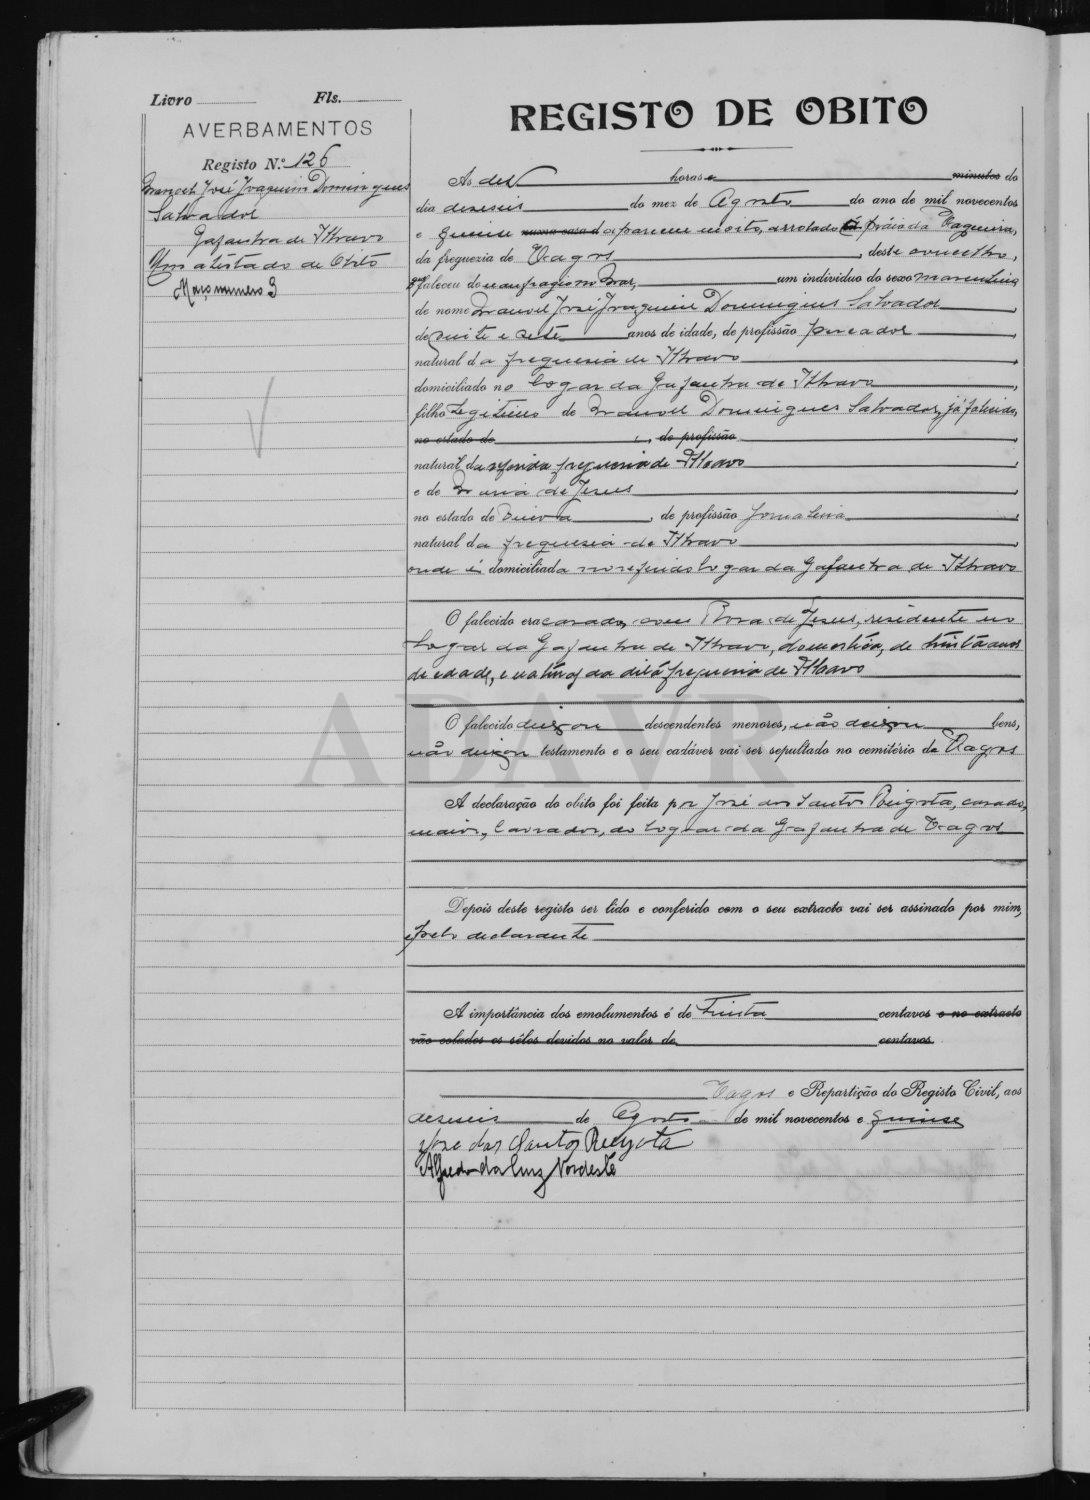 Livro Fls.
AVERBAMENTOS
Registo N.º 126
Manoel José Joaquim Domingues
Salvador
Gafanha de Ilhavo
Um atestado de Obito
Maço numero 3
REGISTO DE OBITO
Ás dez horas e minutos do
dia deseseis do mez de Agosto do ano de mil novecentos
e quinze numa casa d apareceu morto, arrolado á práia da Vagueira,
da freguezia de Vagos, deste concelho,
que faleceu do naufragio no Mar, um individuo do sexo masculino
de nome Manoel José Joaquim Domingues Salvador,
de vinte e sete anos de idade, de profissão pescador,
natural da freguesia de Ilhavo,
domiciliado no logar da Gafanha de Ilhavo,
filho legitimo de Manoel Domingues Salvador, já falecido,
no estado de , de profissão ,
natural da referida freguesia de Ilhavo,
e de Maria de Jesus,
no estado de viuva, de profissão jornaleira,
natural da freguesia de Ilhavo,
onde é domiciliada no referido logar da Gafanha de Ilhavo
O falecido era casado, com Rosa de Jesus, residente no
logar da Gafanha de Ilhavo, domestica, de trinta anos
de edade, e natural da dita freguesia de Ilhavo
ADAVR
O falecido deixou descendentes menores, não deixou bens,
não deixou testamento e o seu cadáver vai ser sepultado no cemitério de Vagos
A declaração do obito foi feita por José dos Santos Reigota, casado,
maior, lavrador, do logar da Gafanha de Vagos
Depois deste registo ser lido e conferido com o seu extracto vai ser assinado por mim,
e pelo declarante
A importância dos emolumentos é de trinta centavos e no extracto
vão colados os sêlos devidos no valor de centavos.
Vagos e Repartição do Registo Civil, aos
deseseis de Agosto de mil novecentos e quinse
José dos Santos Reigota
Alfredo da Cruz Nordeste